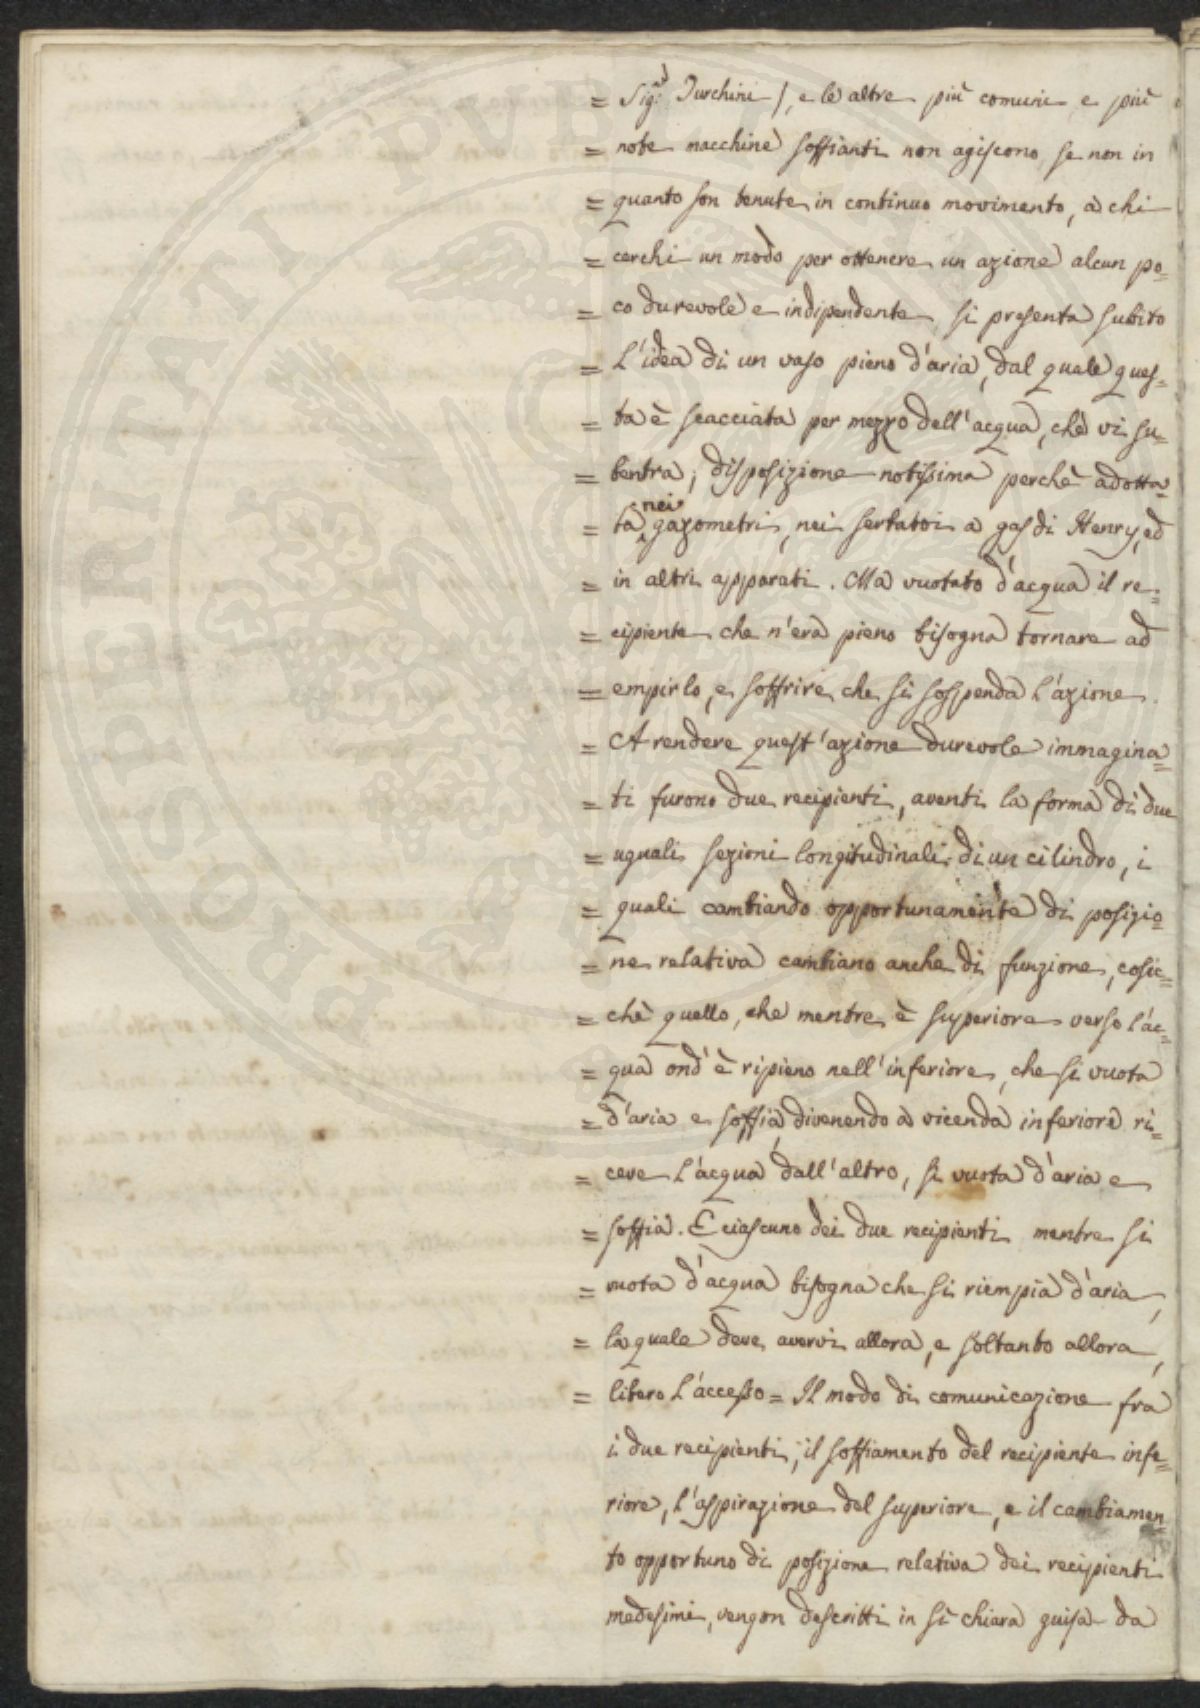 = Sig.r Turchini), e le altre più comuni e più
= note macchine soffianti non agiscono, se non in
= quanto son tenute in continuo movimento, a chi
= cerchi un modo per ottenere un azione alcun po=
= co durevole e indipendente si presenta subito
= l'idea di un vaso pieno d'aria, dal quale ques=
= ta è scacciata per mezzo dell'acqua, che vi su=
= bentra; disposizione notissima perchè adotta=
= ta nei gazometri, nei serbatoi a gas di Henry, ed
= in altri apparati. Ma vuotato d'acqua il re=
= cipiente che n'era pieno bisogna tornare ad
= empirlo, e soffrire che si sospenda l'azione.
= A rendere quest'azione durevole immagina=
= ti furono due recipienti, aventi la forma di due
= uguali sezioni longitudinali di un cilindro, i
= quali cambiando opportunamente di posizio=
= ne relativa cambiano anche di funzione, cosic=
= chè quello, che mentre è superiore verso l'ac=
= qua ond'è ripieno nell'inferiore, che si vuota
= d'aria e soffia, divenendo a vicenda inferiore ri=
= ceve l'acqua dall'altro, si vuota d'aria e
= soffia. E ciascuno dei due recipienti mentre si
= vuota d'acqua bisogna che si riempia d'aria,
= la quale deve avervi allora, e soltanto allora,
= libero l'accesso = Il modo di comunicazione fra
i due recipienti, il soffiamento del recipiente infe=
riore, l'aspirazione del superiore, e il cambiamen=
to opportuno di posizione relativa dei recipienti
medesimi, vengon descritti in sì chiara guisa da
PROSPERITATI PVBLICAE